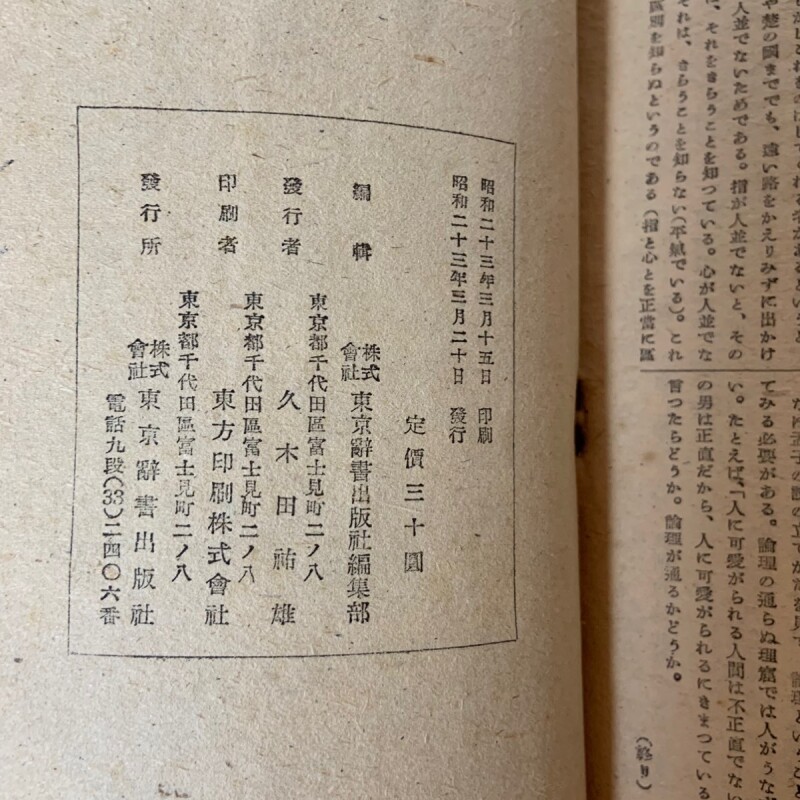 や楚の國まででも、遠い路をかえりみずに出かけ
人並でないためである。指が人並でないと、その
、それをきらうことを知つている。心が人並でな
それは、きらうことを知らない(平氣でいる)。これ
區別を知らぬというのである(指と心とを正當に區
てみる必要がある。論理の通らぬ理窟では人がうな
い。たとえば、「人に可愛がられる人間は不正直でない
の男は正直だから、人に可愛がられるにきまつている
言つたらどうか。論理が通るかどうか。
(終り)
昭和二十三年三月十五日 印刷
昭和二十三年三月二十日 發行
定價三十圓
編輯 株式會社 東京辭書出版社編集部
東京都千代田區富士見町二ノ八
發行者 久木田祐雄
東京都千代田區富士見町二ノ八
印刷者 東方印刷株式會社
東京都千代田區富士見町二ノ八
發行所 株式會社 東京辭書出版社
電話九段(33)二四〇六番